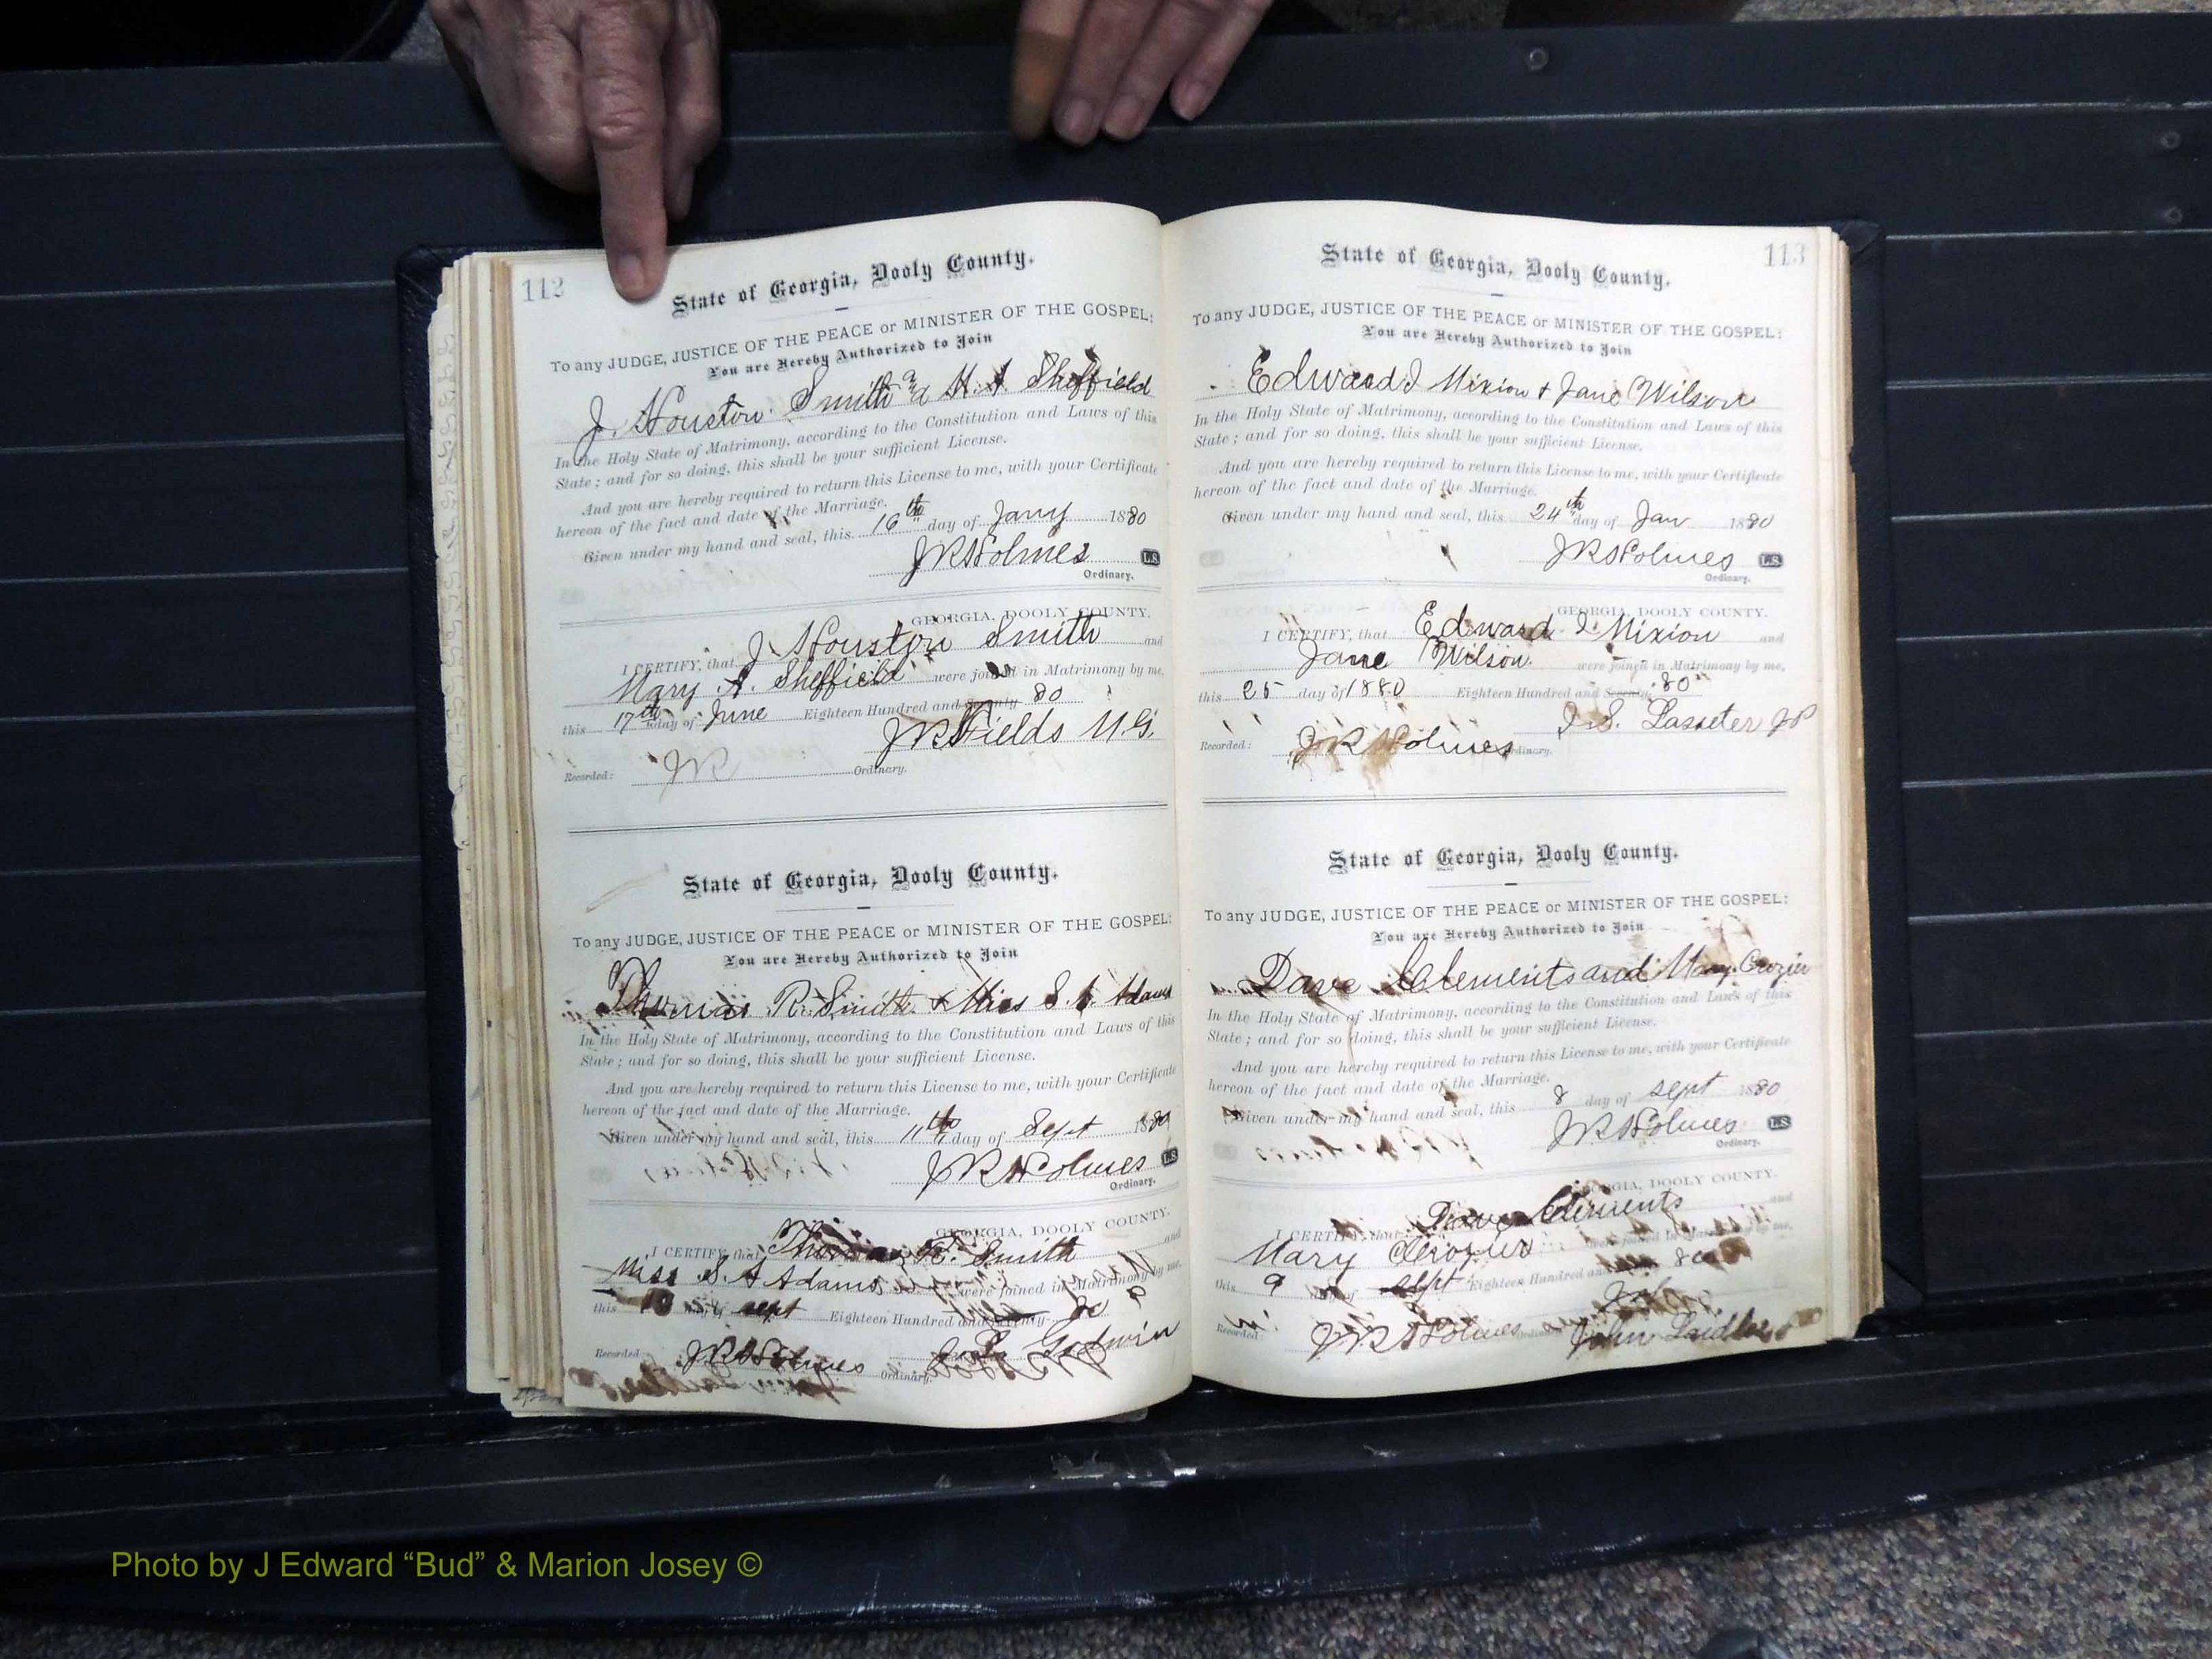 112
State of Georgia, Dooly County.
To any JUDGE, JUSTICE OF THE PEACE or MINISTER OF THE GOSPEL:
You are Hereby Authorized to Join
J. Houston Smith and M. A Sheffield
In the Holy State of Matrimony, according to the Constitution and Laws of this
State; and for so doing, this shall be your sufficient License.
And you are hereby required to return this License to me, with your Certificate
hereon of the fact and date of the Marriage.
Given under my hand and seal, this 16th day of Jany 1880
JRHolmes L.S.
Ordinary.
GEORGIA, DOOLY COUNTY.
I CERTIFY, that J Houston Smith and
Mary A. Sheffield were joined in Matrimony by me,
this 17th day of June Eighteen Hundred and Seventy 80
Fields M.G.
Recorded: JR Ordinary.
State of Georgia, Dooly County.
To any JUDGE, JUSTICE OF THE PEACE or MINISTER OF THE GOSPEL:
You are Hereby Authorized to Join
Thomas R. Smith & Miss S. A. Adams
In the Holy State of Matrimony, according to the Constitution and Laws of this
State; and for so doing, this shall be your sufficient License.
And you are hereby required to return this License to me, with your Certificate
hereon of the fact and date of the Marriage.
Given under my hand and seal, this 11th day of Sept 1880
JRHolmes L.S.
Ordinary.
GEORGIA, DOOLY COUNTY.
I CERTIFY, that Thomas R. Smith and
Miss S. A Adams were joined in Matrimony by me,
this day of sept Eighteen Hundred and Seventy 80
Godwin
Recorded JRHolmes Ordinary.
113
State of Georgia, Dooly County.
To any JUDGE, JUSTICE OF THE PEACE or MINISTER OF THE GOSPEL:
You are Hereby Authorized to Join
Edward I Mixion & Jane Wilson
In the Holy State of Matrimony, according to the Constitution and Laws of this
State; and for so doing, this shall be your sufficient License.
And you are hereby required to return this License to me, with your Certificate
hereon of the fact and date of the Marriage.
Given under my hand and seal, this 24th day of Jan 1880
JRHolmes L.S.
Ordinary.
GEORGIA, DOOLY COUNTY.
I CERTIFY, that Edward I Mixion and
Jane Wilson were joined in Matrimony by me,
this 25 day of 1880 Eighteen Hundred and Seventy 80
J. S. Lasseter JP
Recorded: JRHolmes Ordinary.
State of Georgia, Dooly County.
To any JUDGE, JUSTICE OF THE PEACE or MINISTER OF THE GOSPEL:
You are Hereby Authorized to Join
Dave Clements and Mary Crozier
In the Holy State of Matrimony, according to the Constitution and Laws of this
State; and for so doing, this shall be your sufficient License.
And you are hereby required to return this License to me, with your Certificate
hereon of the fact and date of the Marriage.
Given under my hand and seal, this 8 day of sept 1880
JRHolmes L.S.
Ordinary.
GEORGIA, DOOLY COUNTY.
I CERTIFY, that Dave Clements and
Mary Crozier were joined in Matrimony by me,
this 9 day of sept Eighteen Hundred and 80
Recorded: JRHolmes Ordinary John
Photo by J Edward “Bud” & Marion Josey ©